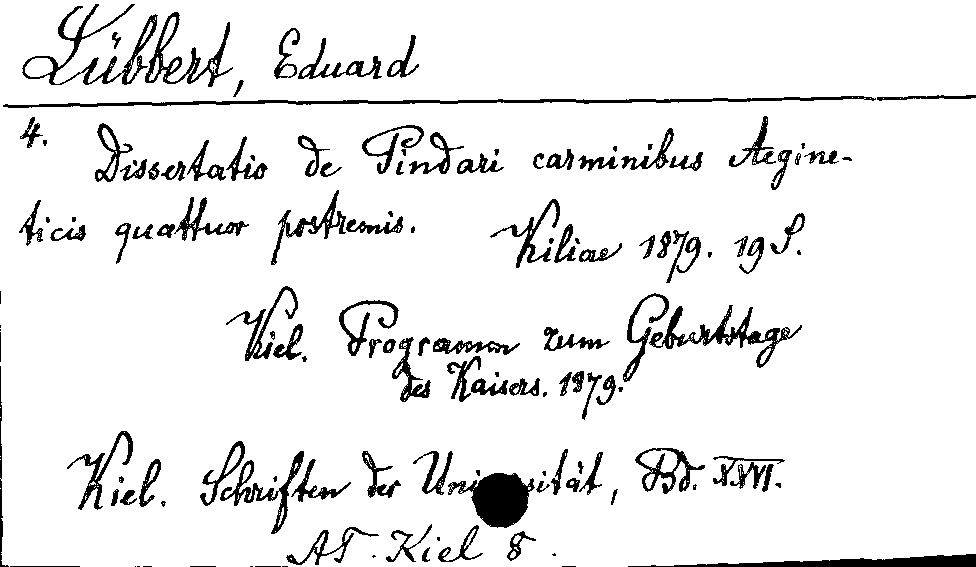 Lübbert, Eduard
4.
Dissertatio de Pindari carminibus Aegine-
ticis quattuor postremis.
Kiliae 1879. 19 S.
Kiel. Programm zum Geburtstage
des Kaisers. 1879.
Kiel. Schriften der Universität, Bd. XXVI.
AT. Kiel 8.